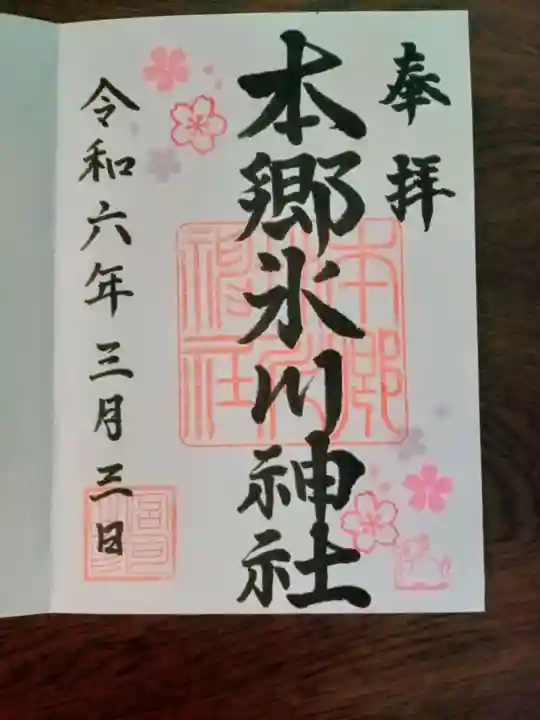 奉拝
本郷氷川神社
本郷氷川神社
令和六年三月三日